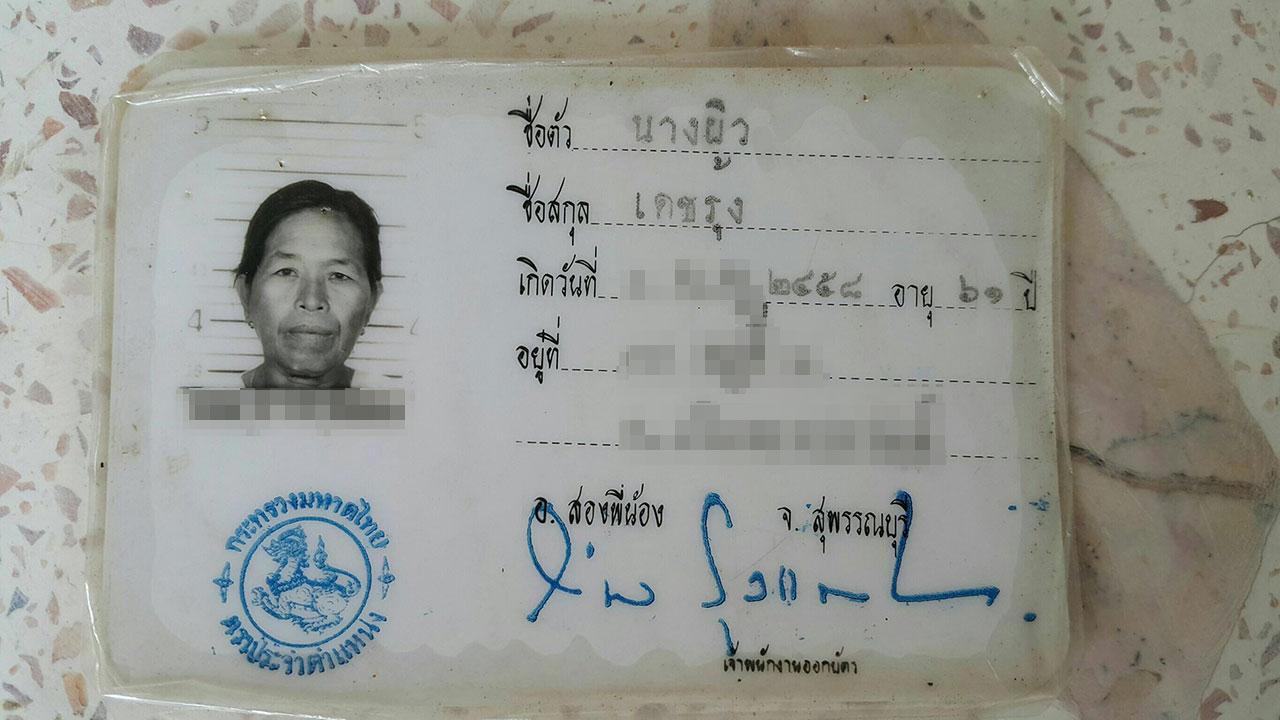 5 5
ชื่อตัว นางผิ้ว
ชื่อสกุล เดชรุง
เกิดวันที่ ๒๔๕๘ อายุ ๖๑ ปี
4
อยู่ที่
อ. สองพี่น้อง จ. สุพรรณบุรี
กระทรวงมหาดไทย
ตราประจำตำแหน่ง
เจ้าพนักงานออกบัตร